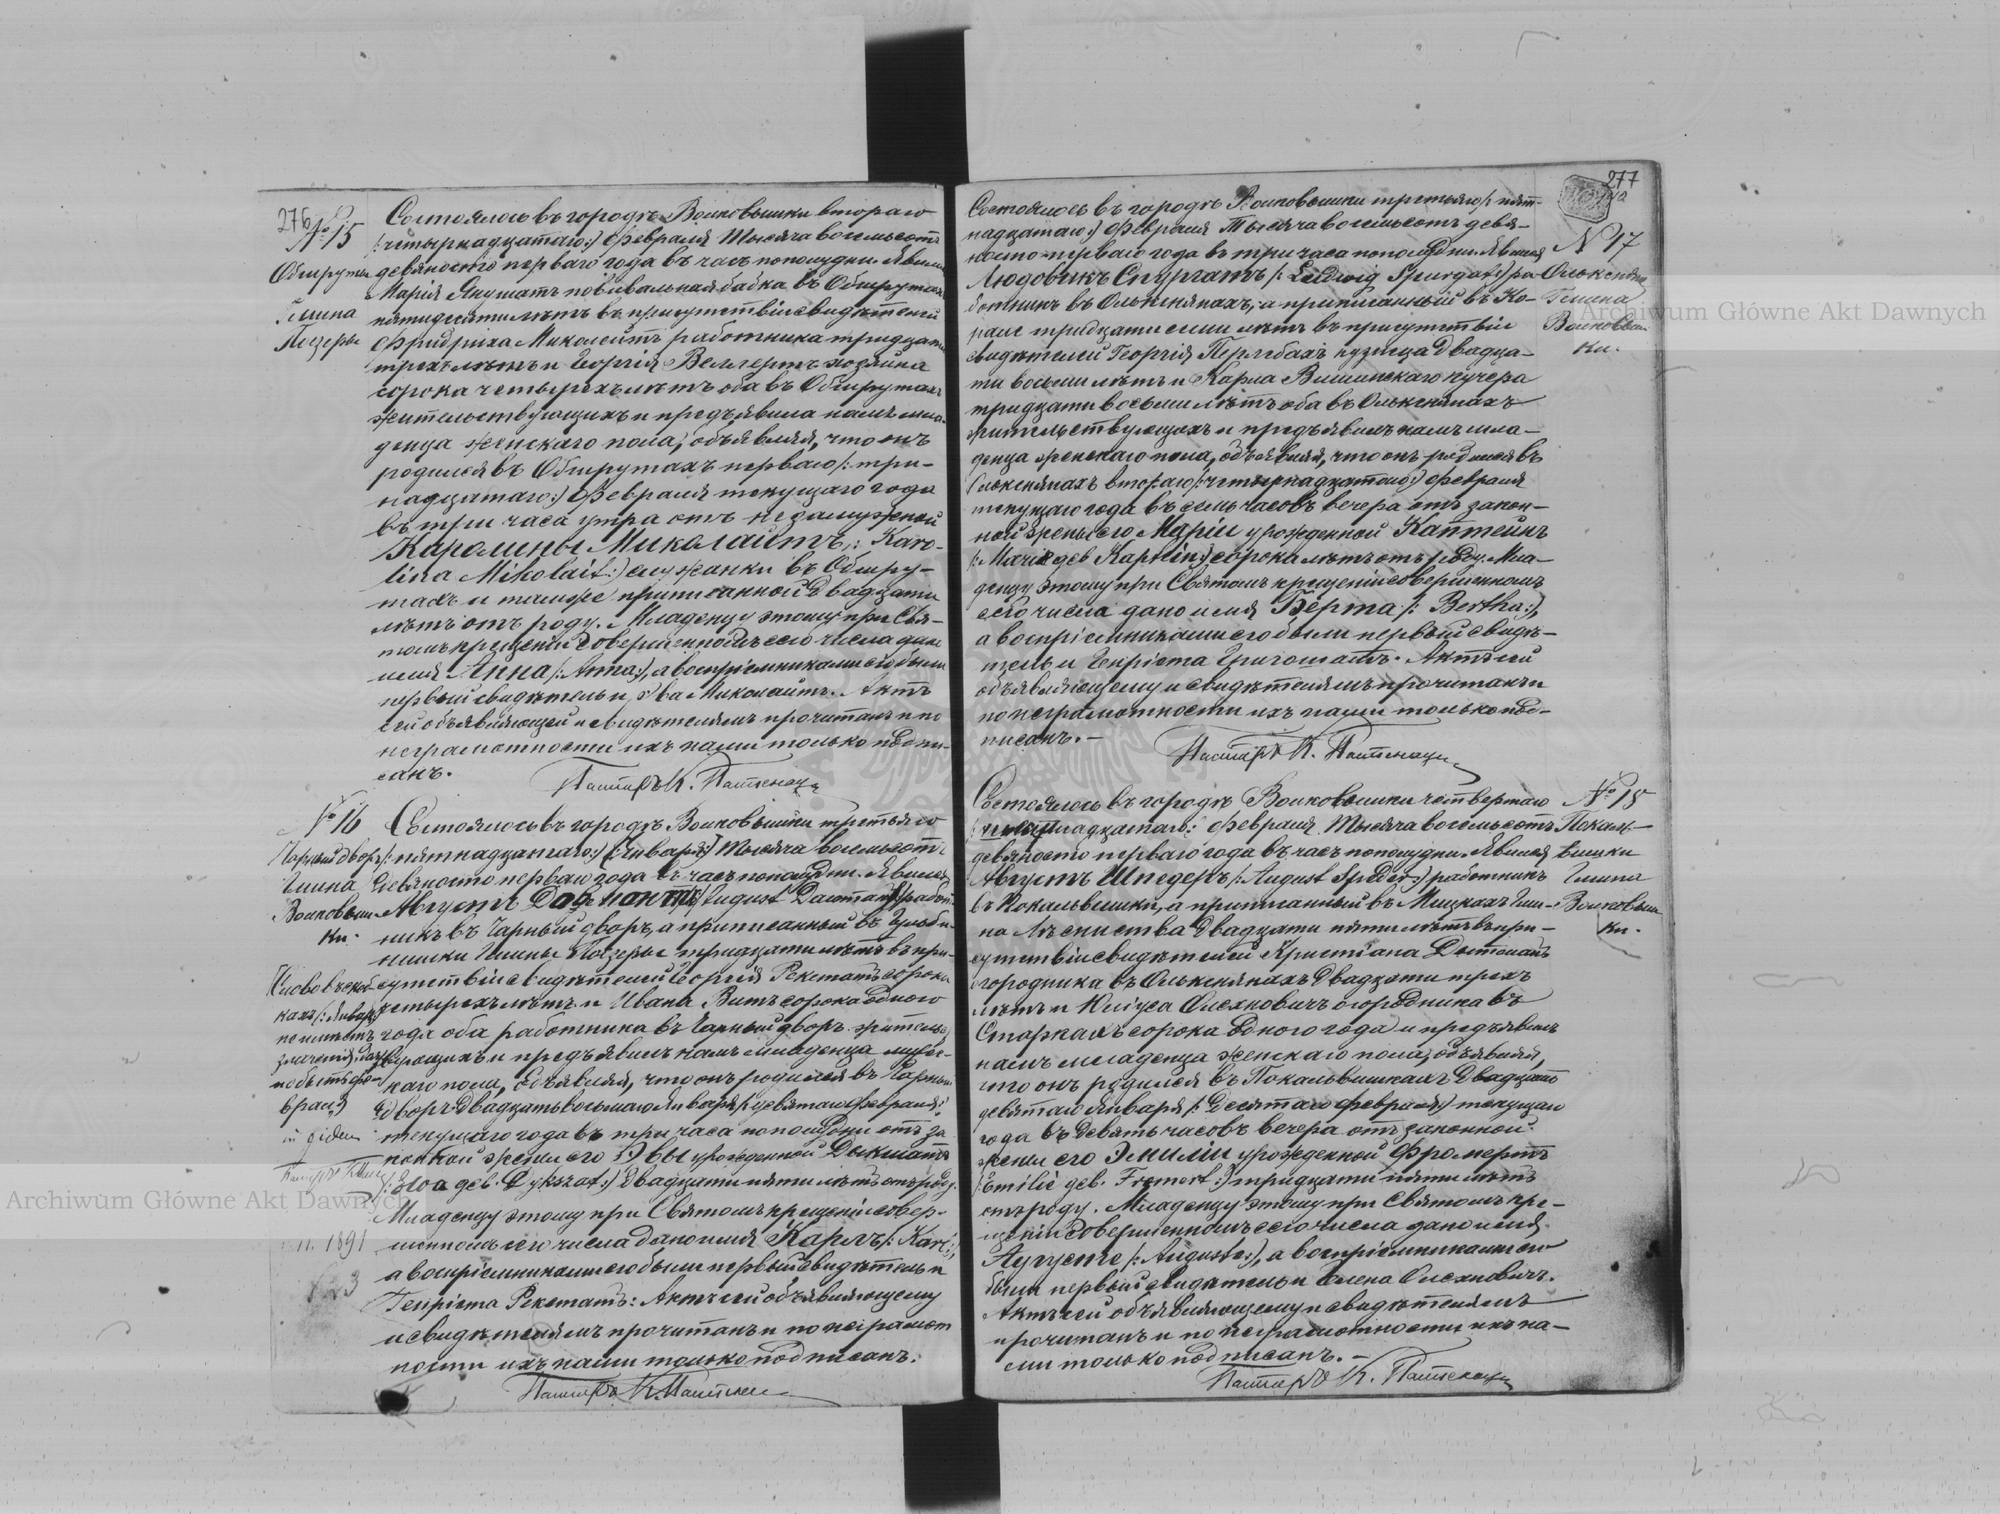 276
№ 15
Обшруты
Гмина
Поезеры
Состоялось въ городѣ Волковышки втораго
/:четырнадцатаго:/ Февраля Тысяча восемьсотъ
девяносто перваго года въ часъ пополудни. Явилась
Марія Якушатъ повивальная бабка въ Обшрутахъ
пятидесяти лѣтъ въ присутствіи свидѣтелей
Фридриха Миколейтъ работника тридцати
трехъ лѣтъ и Георгія Веллертъ хозяина
сорока четырехъ лѣтъ оба въ Обшрутахъ
жительствующихъ и предъявила намъ мла-
денца женскаго пола, объявляя, что онъ
родился въ Обшрутахъ перваго /:три-
надцатаго:/ Февраля текущаго года
въ три часа утра отъ незамужной
Каролины Миколайтъ /: Karo-
lina Mikolait:/ служанки въ Обшру-
тахъ и тамже приписанной двадцати
лѣтъ отъ роду. Младенцу этому при Свя-
томъ крещеніи совершенномъ сего числа дано
имя Анна /:Anna:/, а воспріемниками его были
первый свидѣтель и Эва Миколайтъ. Актъ
сей объявляющей и свидѣтелямъ прочитанъ и по
неграмотности ихъ нами только подпи-
санъ.
Пасторъ К.
№ 16
Чарный дворъ
Гмина
Волковыш-
ки.
Состоялось въ городѣ Волковышки третьяго
/:пятнадцатаго:/ (:Января:) Тысяча восемьсотъ
девяносто перваго года въ часъ пополудни. Явился
Августъ /:August работ-
никъ въ Чарный дворъ, а приписанный въ
Гмины Поезеры тридцати лѣтъ въ при-
сутствіи свидѣтелей Георгія Рекстатъ сорока
четырехъ лѣтъ и Ивана Витъ сорока одного
года оба работника въ Чарный дворъ житель-
ствующихъ и предъявилъ намъ младенца мужс-
каго пола, объявляя, что онъ родился въ Чарный
дворъ двадцать восьмаго Января /:девятаго Февраля:/
текущаго года въ три часа пополудни отъ за-
конной жены его Эвы урожденной Дыкшатъ
/: Ewa geb. Dykszat:/ двадцати пяти лѣтъ отъ роду.
Младенцу этому при Святомъ крещеніи совер-
шенномъ сего числа дано имя Карлъ /: Karl:/,
а воспріемниками его были первый свидѣтель и
Генріета Рекстатъ: Актъ сей объявляющему
и свидѣтелямъ прочитанъ и по неграмот-
ности ихъ нами только подписанъ:
Пасторъ К.
Слово въ скоб-
кахъ /:Января:/
не имѣетъ
значенія,
1891
277
№ 17
Олькеняны
Гмина
Волковыш-
ки.
Состоялось въ городѣ Волковышки третьяго /: пят-
надцатаго:/ Февраля Тысяча восемьсотъ девя-
носто перваго года въ три часа пополудни. Явился
Людовикъ Спургатъ /: Ludwig Spurgat:/ ра-
ботникъ въ Олькенянахъ, а приписанный въ Ко-
тридцати семи лѣтъ въ присутствіи
свидѣтелей Георгія Перлебахъ кузнеца двадца-
ти восьми лѣтъ и Карла Вишинскаго кучера
тридцати восьми лѣтъ оба въ Олькенянахъ
жительствующихъ и предъявилъ намъ мла-
денца женскаго пола, объявляя, что онъ родился въ
Олькенянахъ втораго /:четырнадцатаго:/ Февраля
текущаго года въ семь часовъ вечера отъ закон-
ной жены его Маріи урожденной Каптейнъ
/: Marie geb. Kaptein:/ сорока лѣтъ отъ роду. Мла-
денцу этому при Святомъ крещеніи совершенномъ
сего числа дано имя Берта /: Bertha:/,
а воспріемниками его были первый свидѣ-
тель и Генріета Григошатъ. Актъ сей
объявляющему и свидѣтелямъ прочитанъ и
по неграмотности ихъ нами только под-
писанъ. —
Пасторъ К.
№ 18
Покаль-
вишки
Гмина
Волковыш-
ки.
Состоялось въ городѣ Волковышки четвертаго
Февраля Тысяча восемьсотъ
девяносто перваго года въ часъ пополудни. Явился
Августъ Шпедеръ /: August Speder:/ работникъ
въ Покальвишки, а приписанный въ Мицкахъ Гми-
на Лѣсниства двадцати пяти лѣтъ въ при-
сутствіи свидѣтелей Христіана
огородника въ Олькенянахъ двадцати трехъ
лѣтъ и Юліуса Олехновичъ огородника въ
Старкахъ сорока одного года и предъявилъ
намъ младенца женскаго пола, объявляя,
что онъ родился въ Покальвишкахъ двадцать
девятаго Января /: Десятаго Февраля:/ текущаго
года въ девять часовъ вечера отъ законной
жены его Эмиліи урожденной Фромертъ
/: Emilie geb. Fromert:/ тридцати пяти лѣтъ
отъ роду. Младенцу этому при Святомъ кре-
щеніи совершенномъ сего числа дано имя
Аугусте /: Auguste:/, а воспріемниками его
были первый свидѣтель и Елена Олехновичъ.
Актъ сей объявляющему и свидѣтелямъ
прочитанъ и по неграмотности ихъ на-
ми только подписанъ. —
Пасторъ К.
Archiwum Główne Akt Dawnych
Archiwum Główne Akt Dawnych